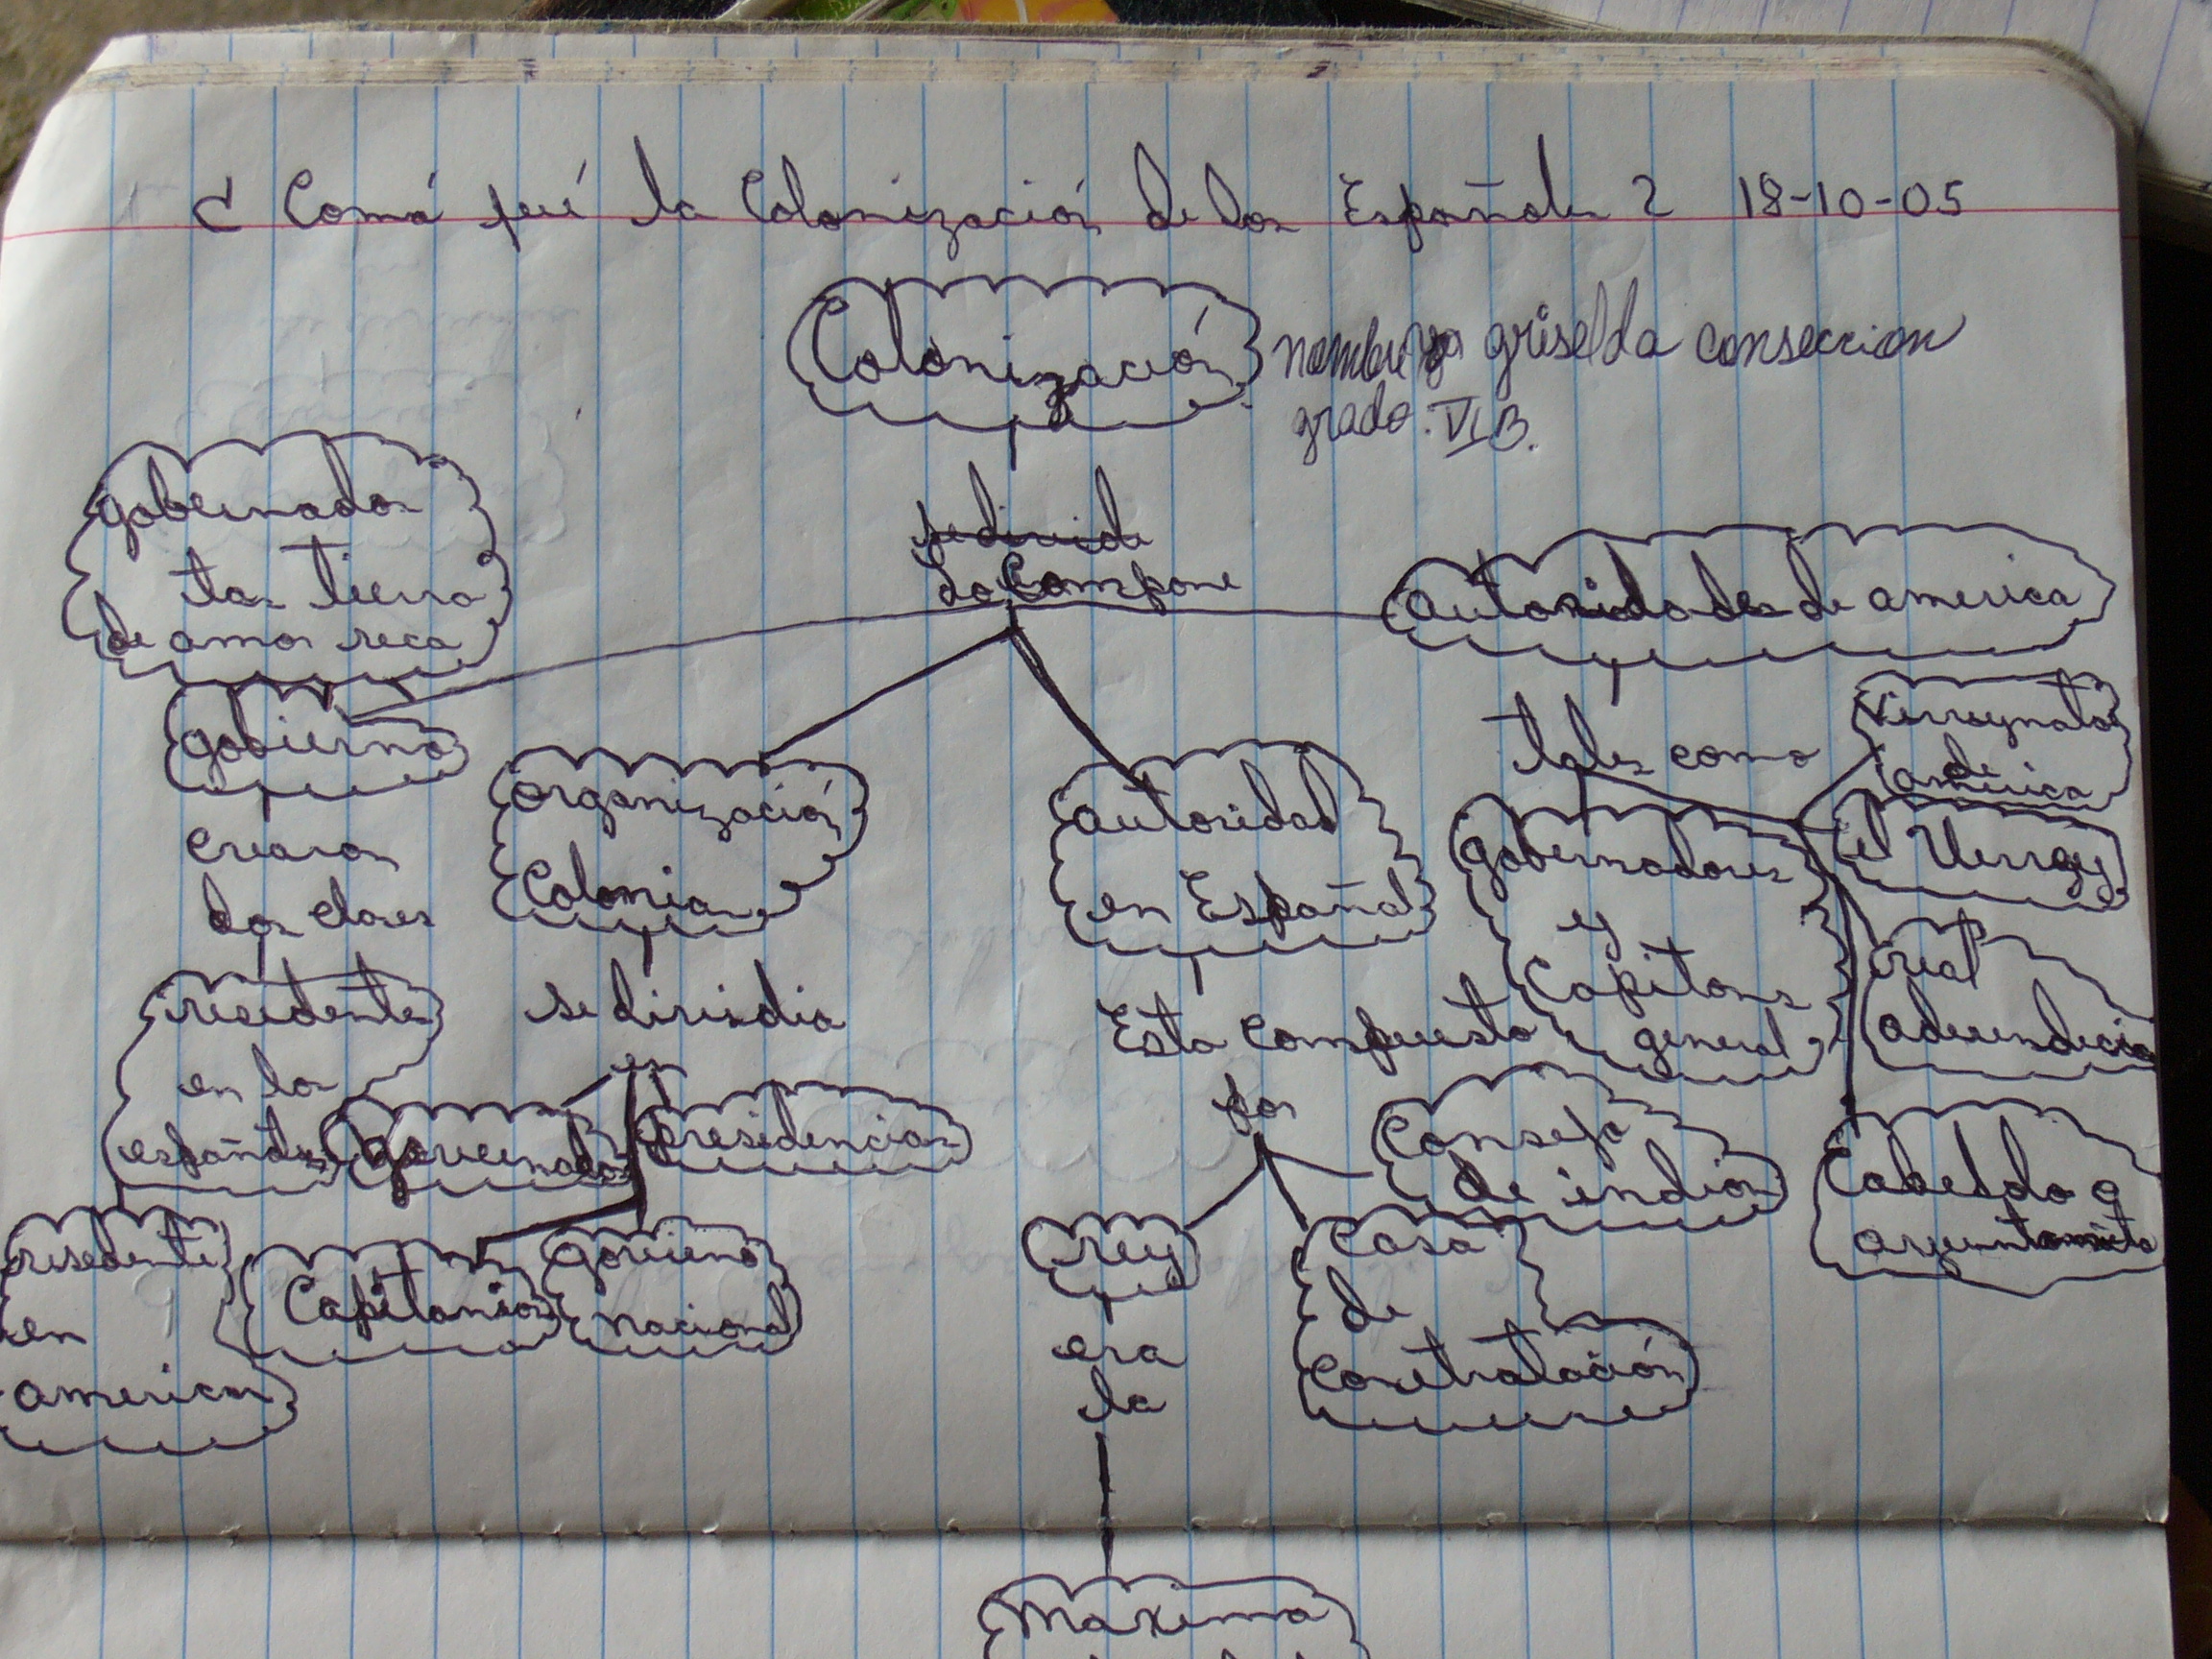 ¿ Comó fué la Colonización de los Españoles ? 18-10-05
Colonización
griselda conseccion
grado: VI B.
se divide
lo Compone
gobernador
las tierra
de america
gobierno
crearon
dos clases
residente
en la
españa
residente
en
america
organización
Colonia
se dirividia
en
governador
presidencia
Capitania
govierno
nacional
autoridad
en Español
Esta Compuesto
por
rey
era
la
Maxima
Consejo
de indias
Casa
de
Contratación
autoridades de america
tales como
Virreynato
de
america
el Virrey
gobernadores
y
Capitans
general
real
Cabeldo o
ayuntamieto